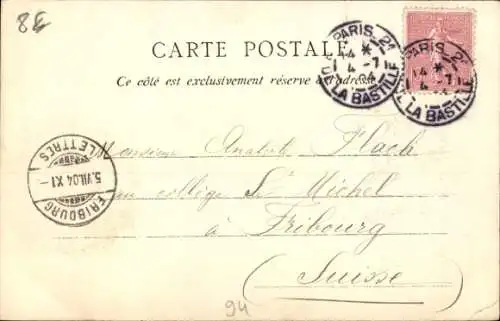 8€
CARTE POSTALE
Ce côté est exclusivement réservé à l'adresse
PARIS 21
14 *
4 -7
04
DE LA BASTILLE
PARIS 21
14 *
4 -7
LA BASTILLE
Monsieur Anatole Flach
au collège St Michel
à
Fribourg
(Suisse)
FRIBOURG
5.VII.04.XI-
LETTRES
94